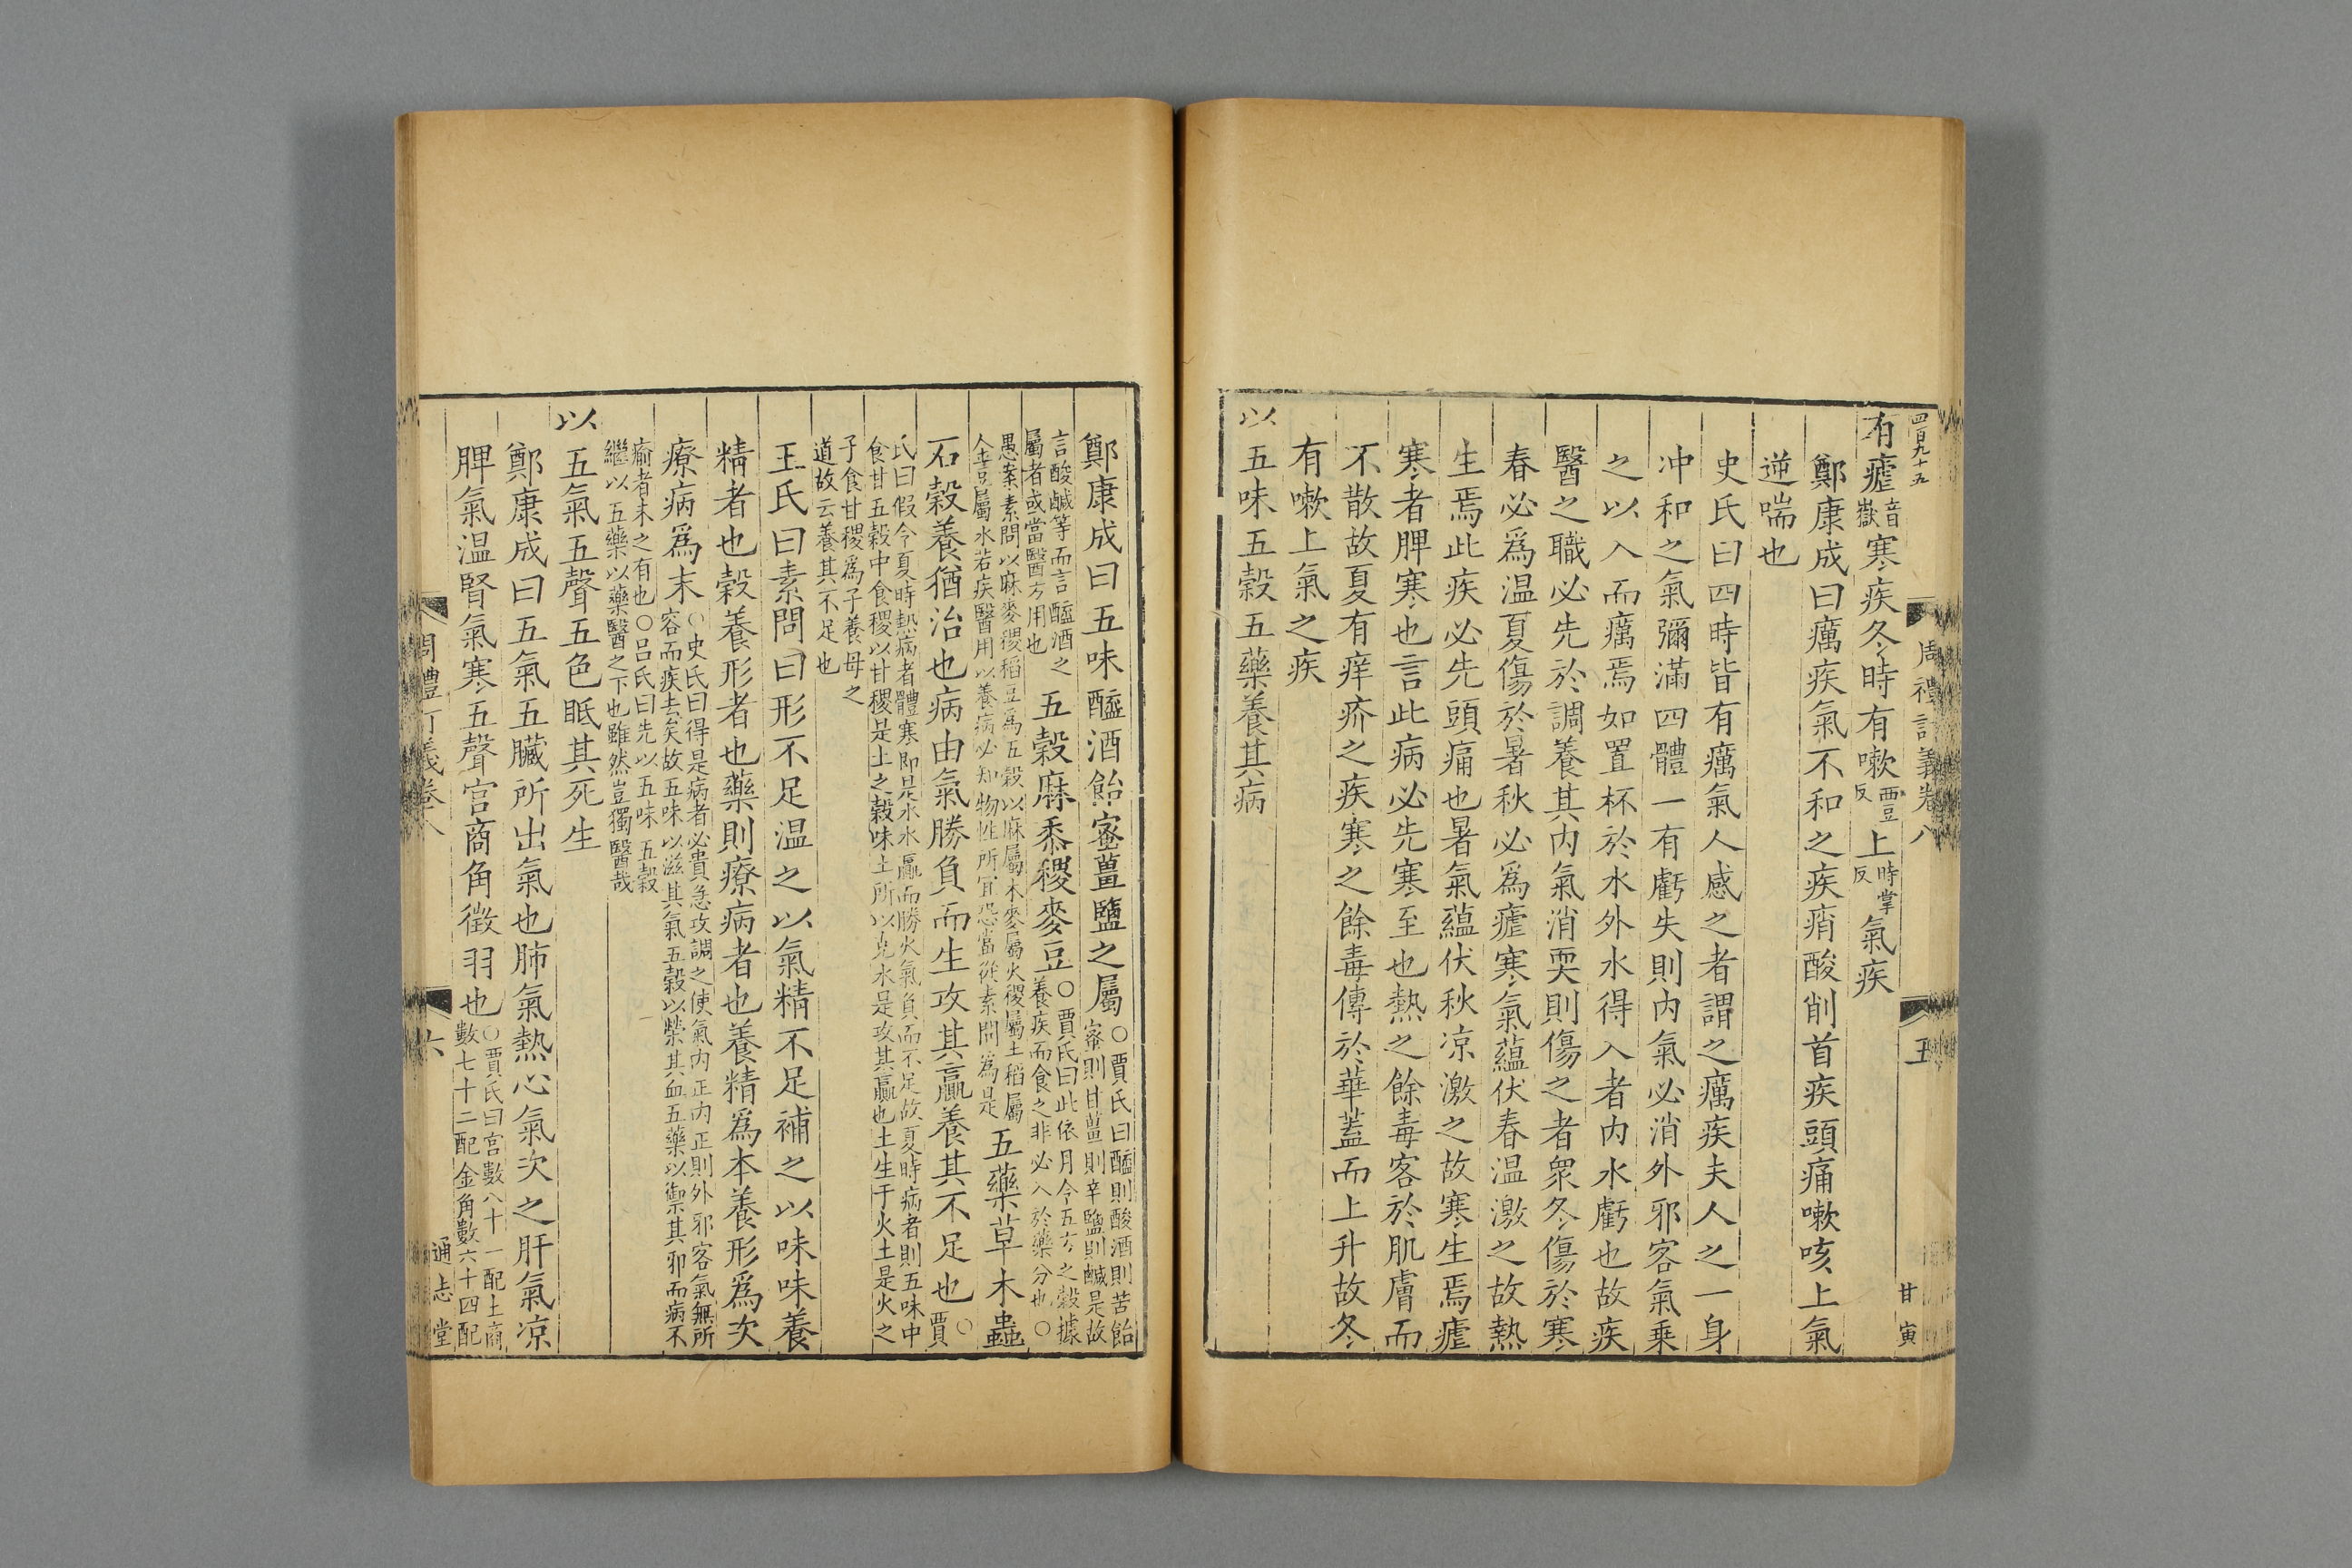 四百九十五
周禮訂義卷八
五
甘寅
有瘧音嶽寒疾冬時有嗽西豆反上時掌反氣疾
鄭康成曰癘疾氣不和之疾痟酸削首疾頭痛嗽咳上氣
逆喘也
史氏曰四時皆有癘氣人感之者謂之癘疾夫人之一身
冲和之氣彌滿四體一有虧失則内氣必消外邪客氣乗
之以入而癘焉如置杯於水外水得入者内水虧也故疾
醫之職必先於調養其内氣消耎則傷之者衆冬傷於寒
春必爲温夏傷於暑秋必爲瘧寒氣蘊伏春温激之故熱
生焉此疾必先頭痛也暑氣蘊伏秋凉激之故寒生焉瘧
寒者脾寒也言此病必先寒至也熱之餘毒客於肌膚而
不散故夏有痒疥之疾寒之餘毒傳於華蓋而上升故冬
有嗽上氣之疾
以五味五穀五藥養其病
鄭康成曰五味醯酒飴蜜薑鹽之屬○賈氏曰醯則酸酒則苦飴
蜜則甘薑則辛鹽則鹹是故
言酸鹹等而言醯酒之
屬者或當醫方用也
五穀麻黍稷麥豆○賈氏曰此依月令五方之穀據
養疾而食之非必入於藥分也○
愚案素問以麻麥稷稻豆爲五穀以麻屬木麥屬火稷屬土稻屬
金豆屬水若疾醫用以養病必知物性所宜恐當從素問爲是
五藥草木蟲
石穀養猶治也病由氣勝負而生攻其贏養其不足也○賈
氏曰假令夏時熱病者體寒即是水水贏而勝火氣負而不足故夏時病者則五味中
食甘五穀中食稷以甘稷是土之穀味土所以克水是攻其贏也土生于火土是火之
子食甘稷爲子養母之
道故云養其不足也
王氏曰素問曰形不足温之以氣精不足補之以味味養
精者也穀養形者也藥則療病者也養精爲本養形爲次
療病爲末○史氏曰得是病者必貴急攻調之使氣内正内正則外邪客氣無所
容而疾去矣故五味以滋其氣五穀以榮其血五藥以禦其邪而病不
瘉者未之有也○吕氏曰先以五味五穀
繼以五藥以藥醫之下也雖然豈獨醫哉
以五氣五聲五色眡其死生
鄭康成曰五氣五臟所出氣也肺氣熱心氣次之肝氣凉
脾氣温腎氣寒五聲宫商角徵羽也○賈氏曰宫數八十一配土商
數七十二配金角數六十四配
周禮訂義卷八
六
通志堂